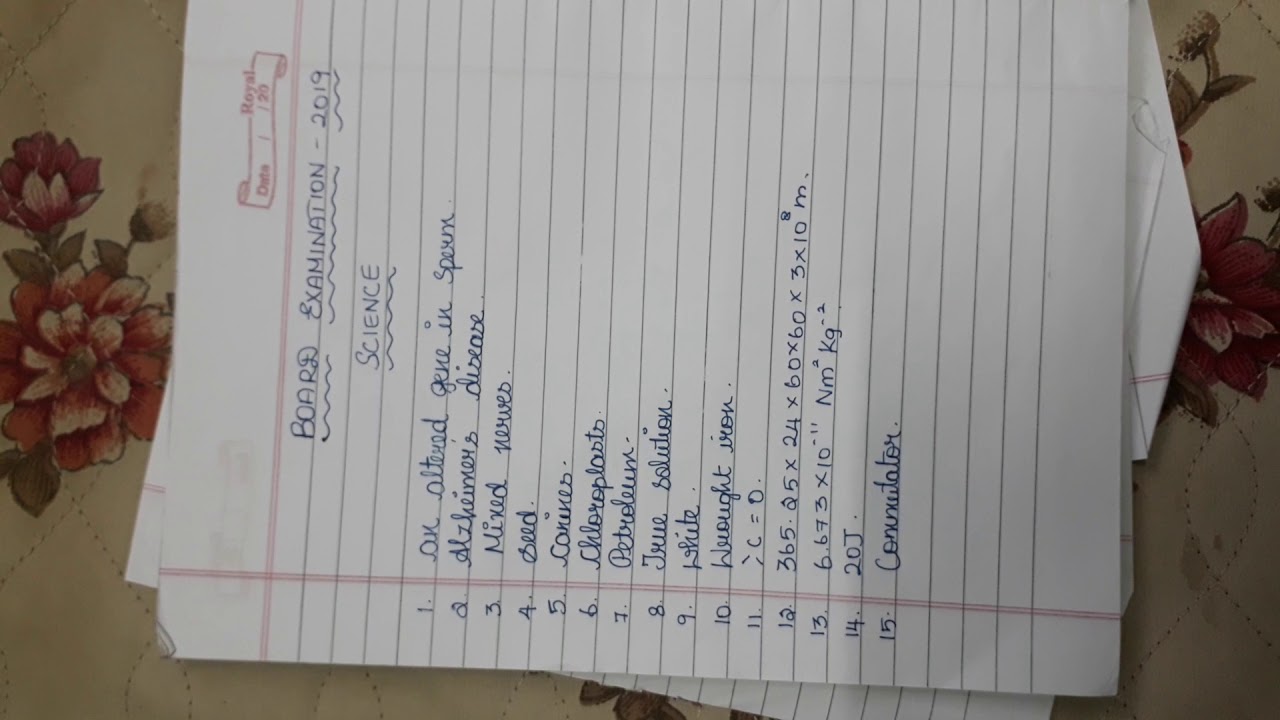 Royal
Date / / 20
BOARD EXAMINATION - 2019
SCIENCE
1. An altered gene in sperm.
2. Alzheimer's disease.
3. Mixed nerves.
4. Seed.
5. Canines.
6. Chloroplasts.
7. Petroleum.
8. True solution.
9. White.
10. Wrought iron.
11. >C=O.
12. 365.25 × 24 × 60 × 60 × 3 × 10⁸ m.
13. 6.673 × 10⁻¹¹ Nm² Kg⁻².
14. 20J.
15. Commutator.